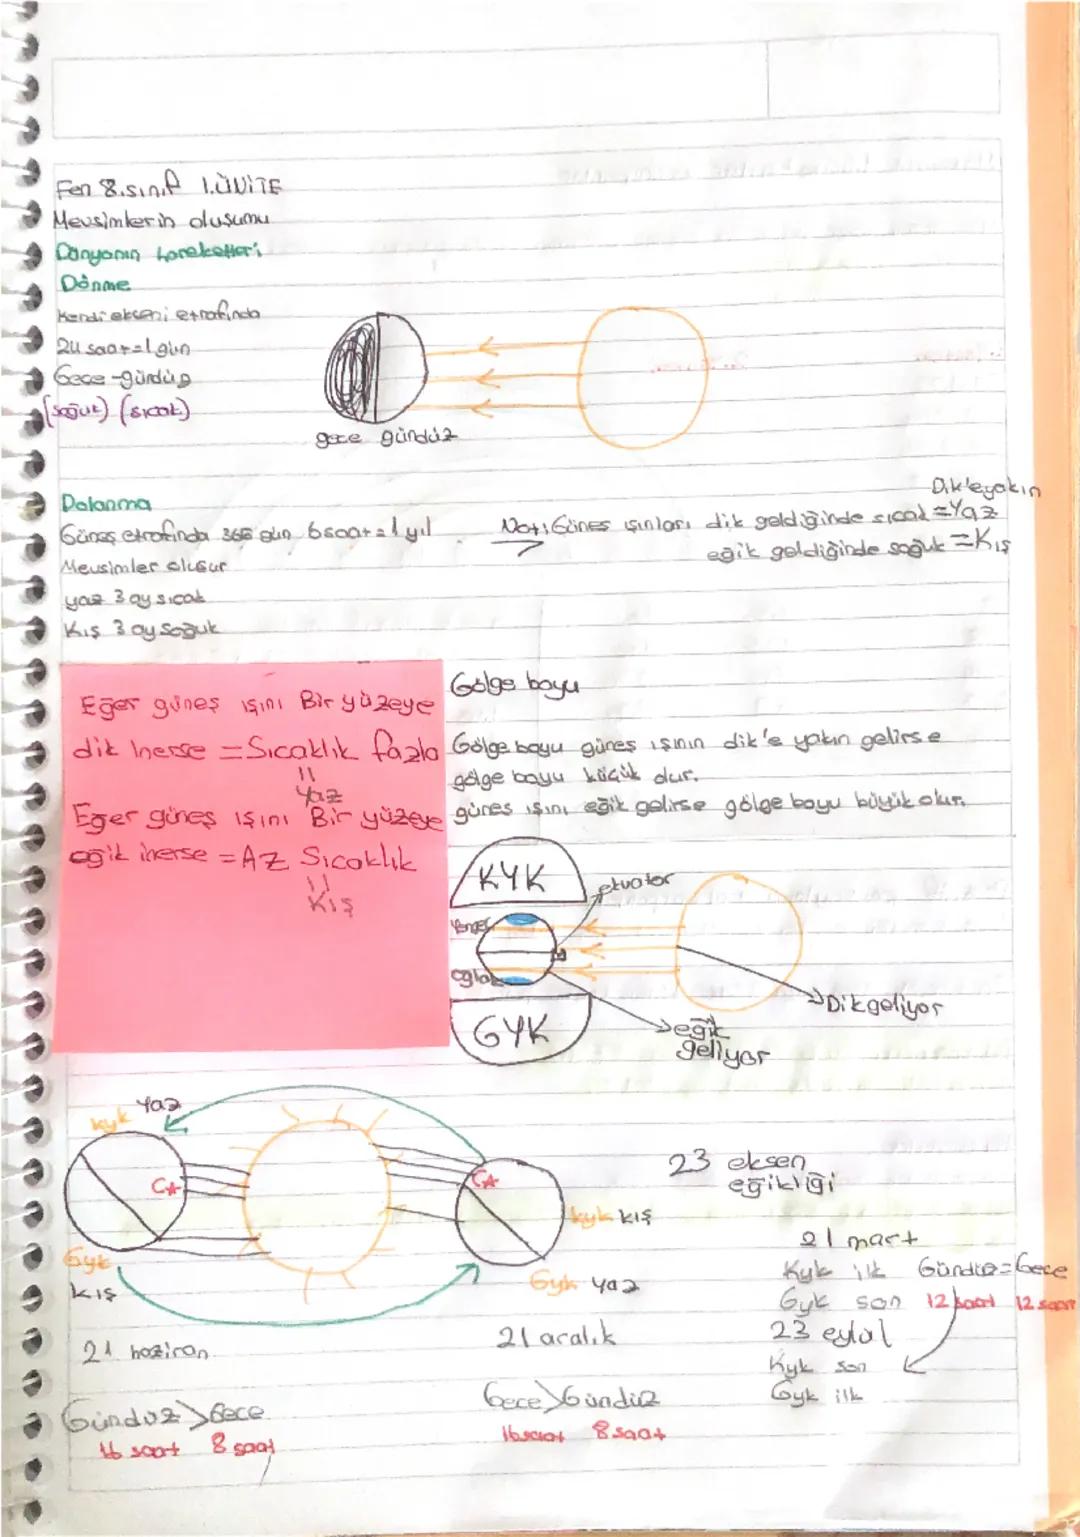 Fen 8.sınıf 1.ÜNİTE
Mevsimlerin oluşumu
Dünyanın hareketleri
Dönme
Kendi ekseni etrafında
24 saat=1 gün
Gece-gündüz
(soğuk) (sıcak)
gece gündüz
Dolanma
Güneş etrafında 365 gün 6 saat=1 yıl
Mevsimler oluşur
yaz 3 ay sıcak
Kış 3 ay soğuk
Dik'e yakın
Not: Güneş ışınları dik geldiğinde sıcak =Yaz
eğik geldiğinde soğuk =Kış
Eğer güneş ışını Bir yüzeye
dik inerse =Sıcaklık fazla
Yaz
Eğer güneş ışını Bir yüzeye
eğik inerse =Az Sıcaklık
Kış
Gölge boyu
Gölge boyu güneş ışının dik'e yakın gelirse
gölge boyu küçük olur.
güneş ışını eğik gelirse gölge boyu büyük olur.
KYK
ekvator
Yengeç
oğlak
GYK
Dik geliyor
eğik
geliyor
kyk Yaz
Gyk
kış
21 haziran
Gündüz>Gece
16 saat 8 saat
kyk kış
Gyk yaz
21 aralık
Gece>Gündüz
16 saat 8 saat
23 eksen
eğikliği
21 mart
Kyk ilk Gündüz=Gece
Gyk son 12 saat 12 saat
23 eylül
Kyk son
Gyk ilk